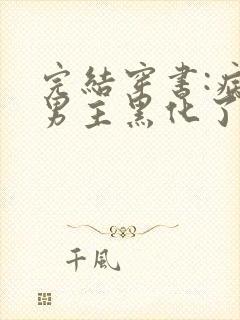 完結穿書:病
男主黑化了
千風